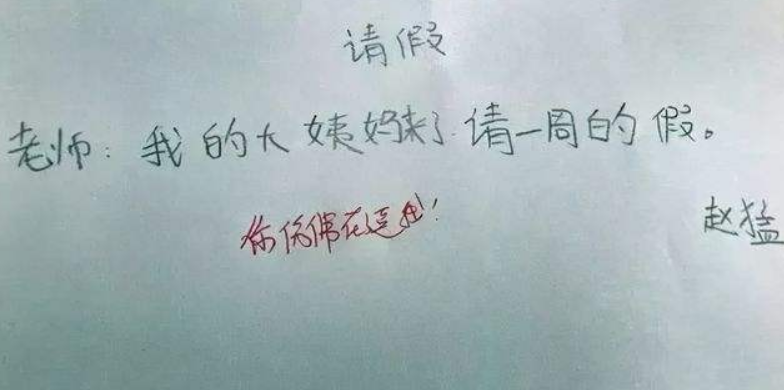 请假
老师：我的大姨妈来了请一周的假。
赵猛
你仿佛在逗我！